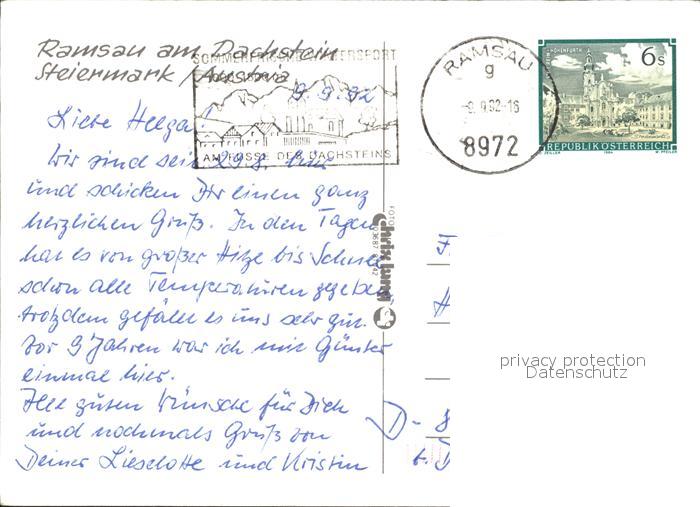 Ramsau am Dachstein
Steiermark / Austria
SOMMERFRISCHE WINTERSPORT
AM FUSSE DES DACHSTEINS
RAMSAU
9
-9.9.92-16
8972
STIFT HOHENFURTH
6s
REPUBLIK ÖSTERREICH
ZEILER 1984 W. PFEILER
9.9.92
Liebe Helga!
Wir sind seit 29.8. hier
und schicken Dir einen ganz
herzlichen Gruß. In den Tagen
hat es von großer Hitze bis Schnee
schon alle Temperaturen gegeben,
trotzdem gefällt es uns sehr gut.
Vor 9 Jahren war ich mit Günter
einmal hier.
Alle guten Wünsche für Dich
und nochmals Gruß von
Deiner Lieselotte und Kristin
FOTO
03687
42
chris lung
F
H
D-
privacy protection
Datenschutz